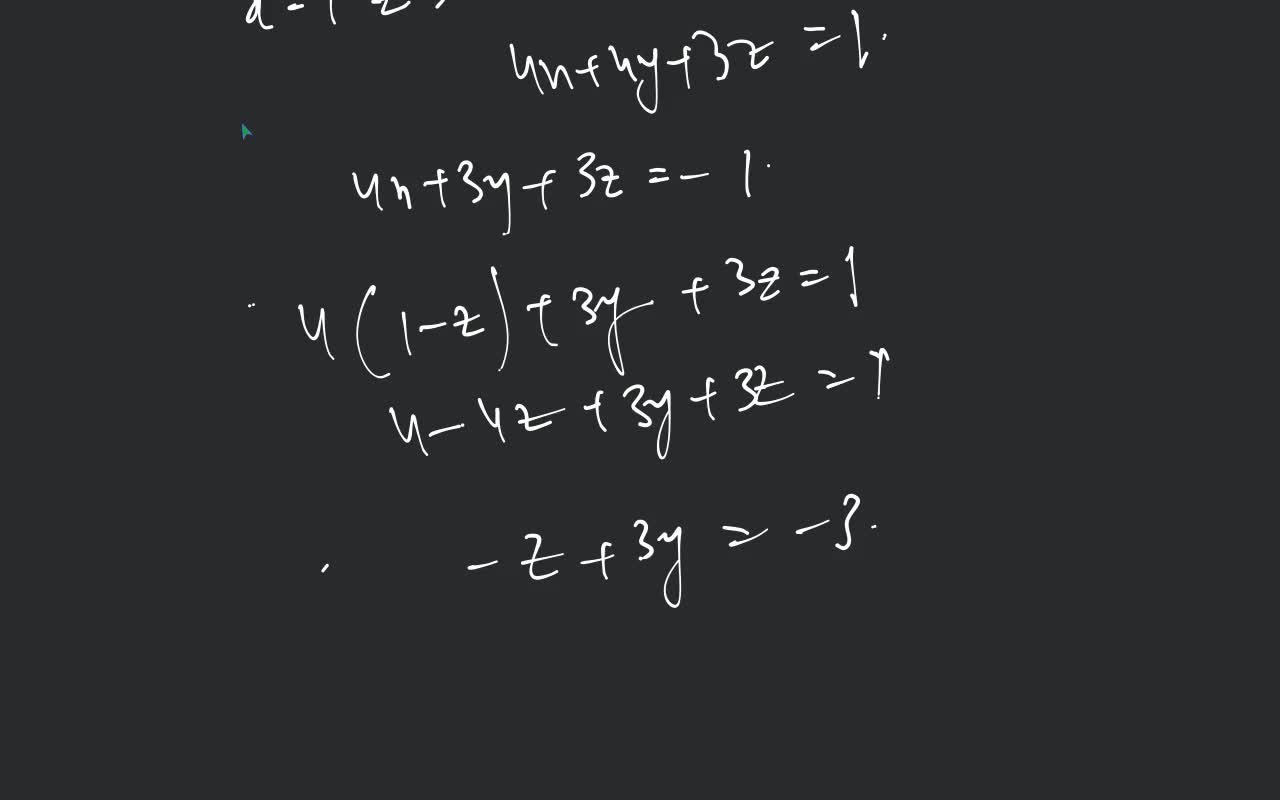 4x+4y+3z = 1.
4x+3y+3z = - 1.
4(1-z)+3y + 3z = 1
4-4z+3y+3z = 1
-z+3y = -3.